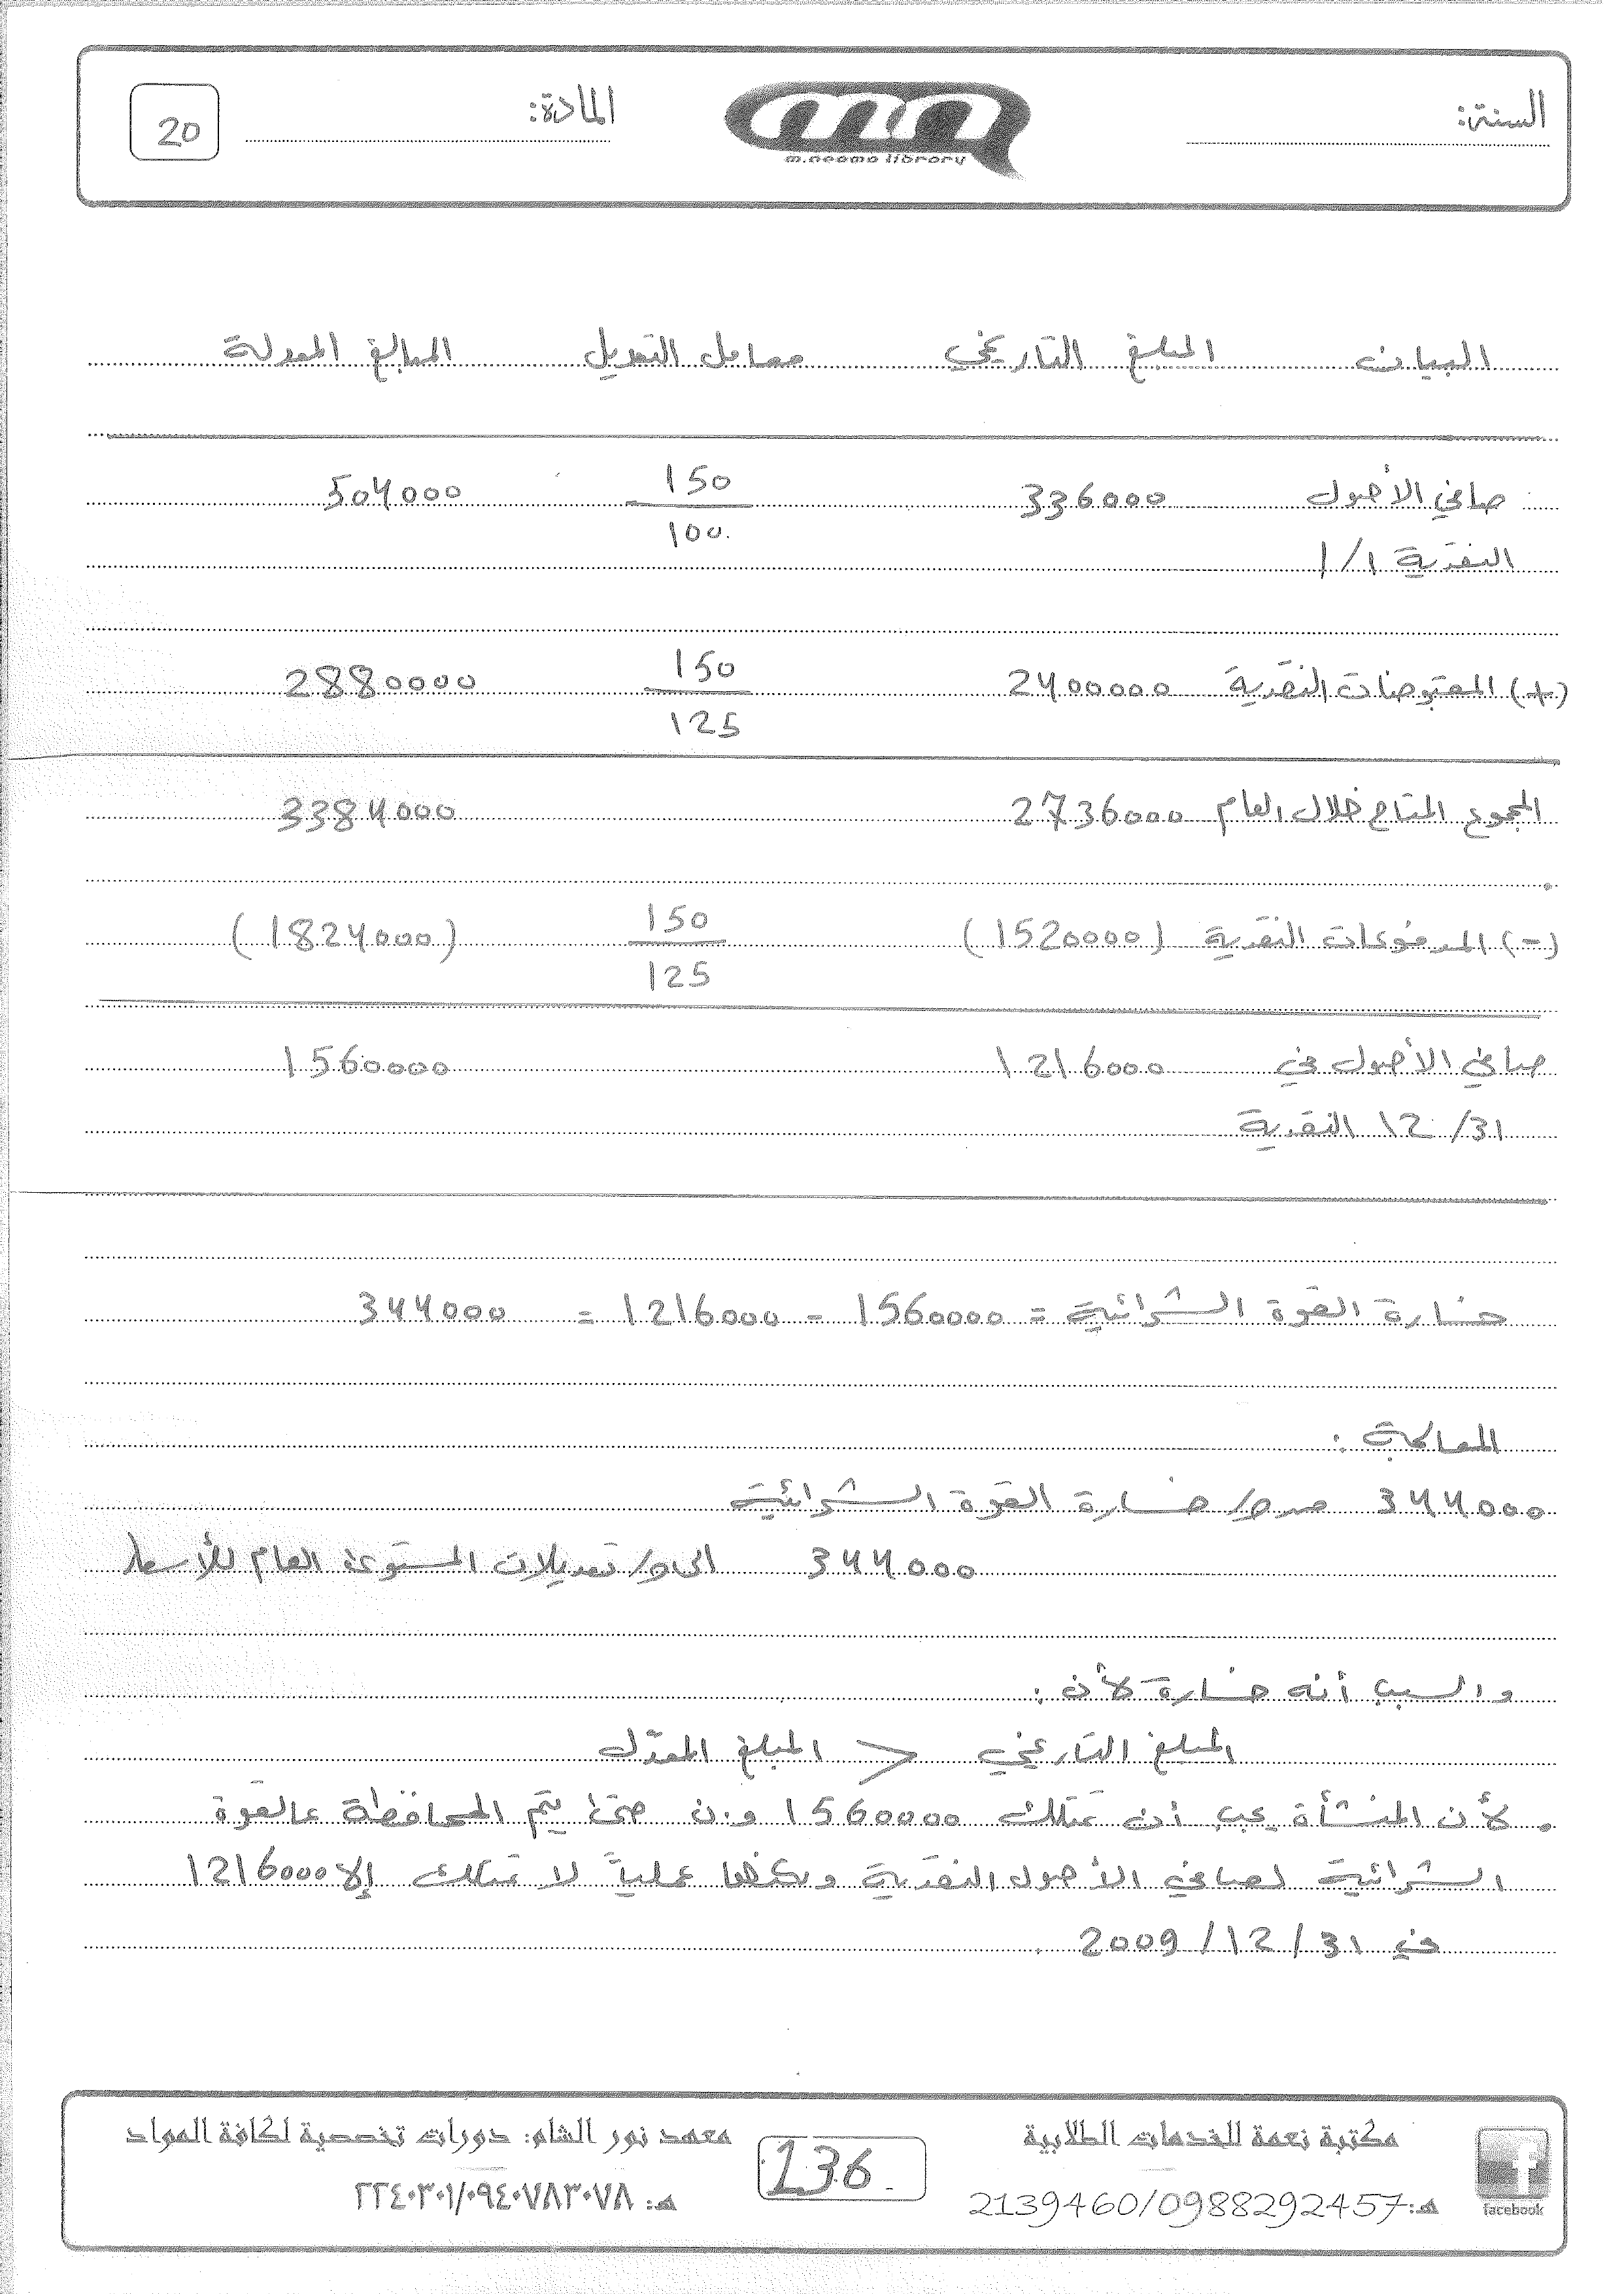 السنة:
m.neoma library
المادة:
20
البيان المبلغ التاريخي معامل التعديل المبالغ المعدلة
صافي الأصول 336000 150/100 504000
النقدية 1/1
(+) المقبوضات النقدية 2400000 150/125 2880000
المجموع المتاح خلال العام 2736000 3384000
(-) المدفوعات النقدية (1520000) 150/125 (1824000)
صافي الأصول في 1216000 1560000
12/31 النقدية
خسارة القوة الشرائية = 1560000 - 1216000 = 344000
المعالجة :
344000 من ح/ خسارة القوة الشرائية
344000 الى ح/ تعديلات المستوى العام للأسعار
والسبب أنه خسارة لأن :
المبلغ التاريخي < المبلغ المعدّل
. لأن المنشأة يجب أن تمتلك 1560000 و.ن حتى يتم المحافظة عالقوة
الشرائية لصافي الأصول النقدية ولكنها عملياً لا تمتلك إلا 1216000
في 2009/12/31 .
مكتبة نعمة للخدمات الطلابية
هـ: 2139460/0988292457
facebook
136
معهد نور الشام: دورات تخصصية لكافة المواد
هـ: ٢٢٤٠٣٠١/٠٩٤٠٧٨٣٠٧٨